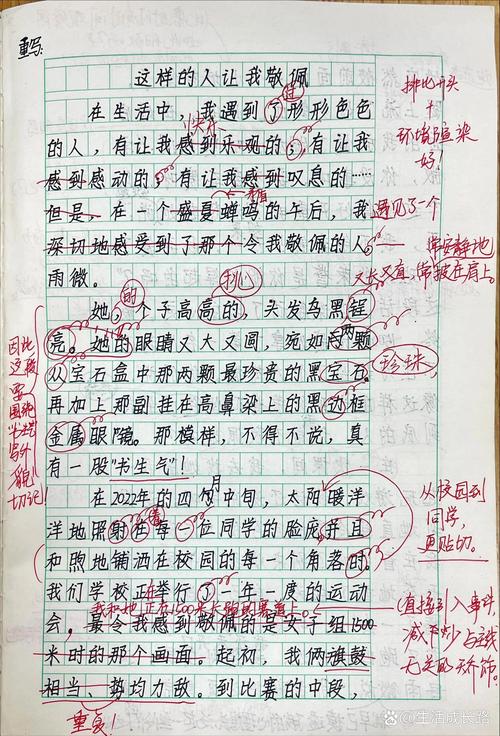 重写:
这样的人让我敬佩
在生活中,我遇到了形形色色
过
快乐
的人,有让我感到乐观的;有让我
感到感动的;有让我感到叹息的……
但是,在一个盛夏蝉鸣的午后,我
遇见了一个
深切地感受到了那个令我敬佩的人
雨微。
排比开头
+
环境渲染
好!
常安静地
又长又直 常披在肩上。
她,个子高高的,头发乌黑锃
的
挑
亮。她的眼睛又大又圆,宛如两颗
从宝石盒中那两颗最珍贵的黑宝石。
珍珠
再加上那副挂在高鼻梁上的黑边框
金属眼镜。那模样,不得不说,真
有一股"书生气"!
因此
这段
要
围绕
写外
貌
切记!
在2022年的四月中旬,太阳暖洋
洋地照射在每一位同学的脸庞并且
着
和煦地铺洒在校园的每一个角落时。
从校园到
同学,
更贴切。
我们学校正举行了一年一度的运动
在
我和她正在1500米长跑的赛道上。
会,最令我感到敬佩的是女子组1500
米时的那个画面。起初,我俩旗鼓
相当、势均力敌。到比赛的中段,
重复!
直接引入事件
减少与主线
无关的
生活成长路